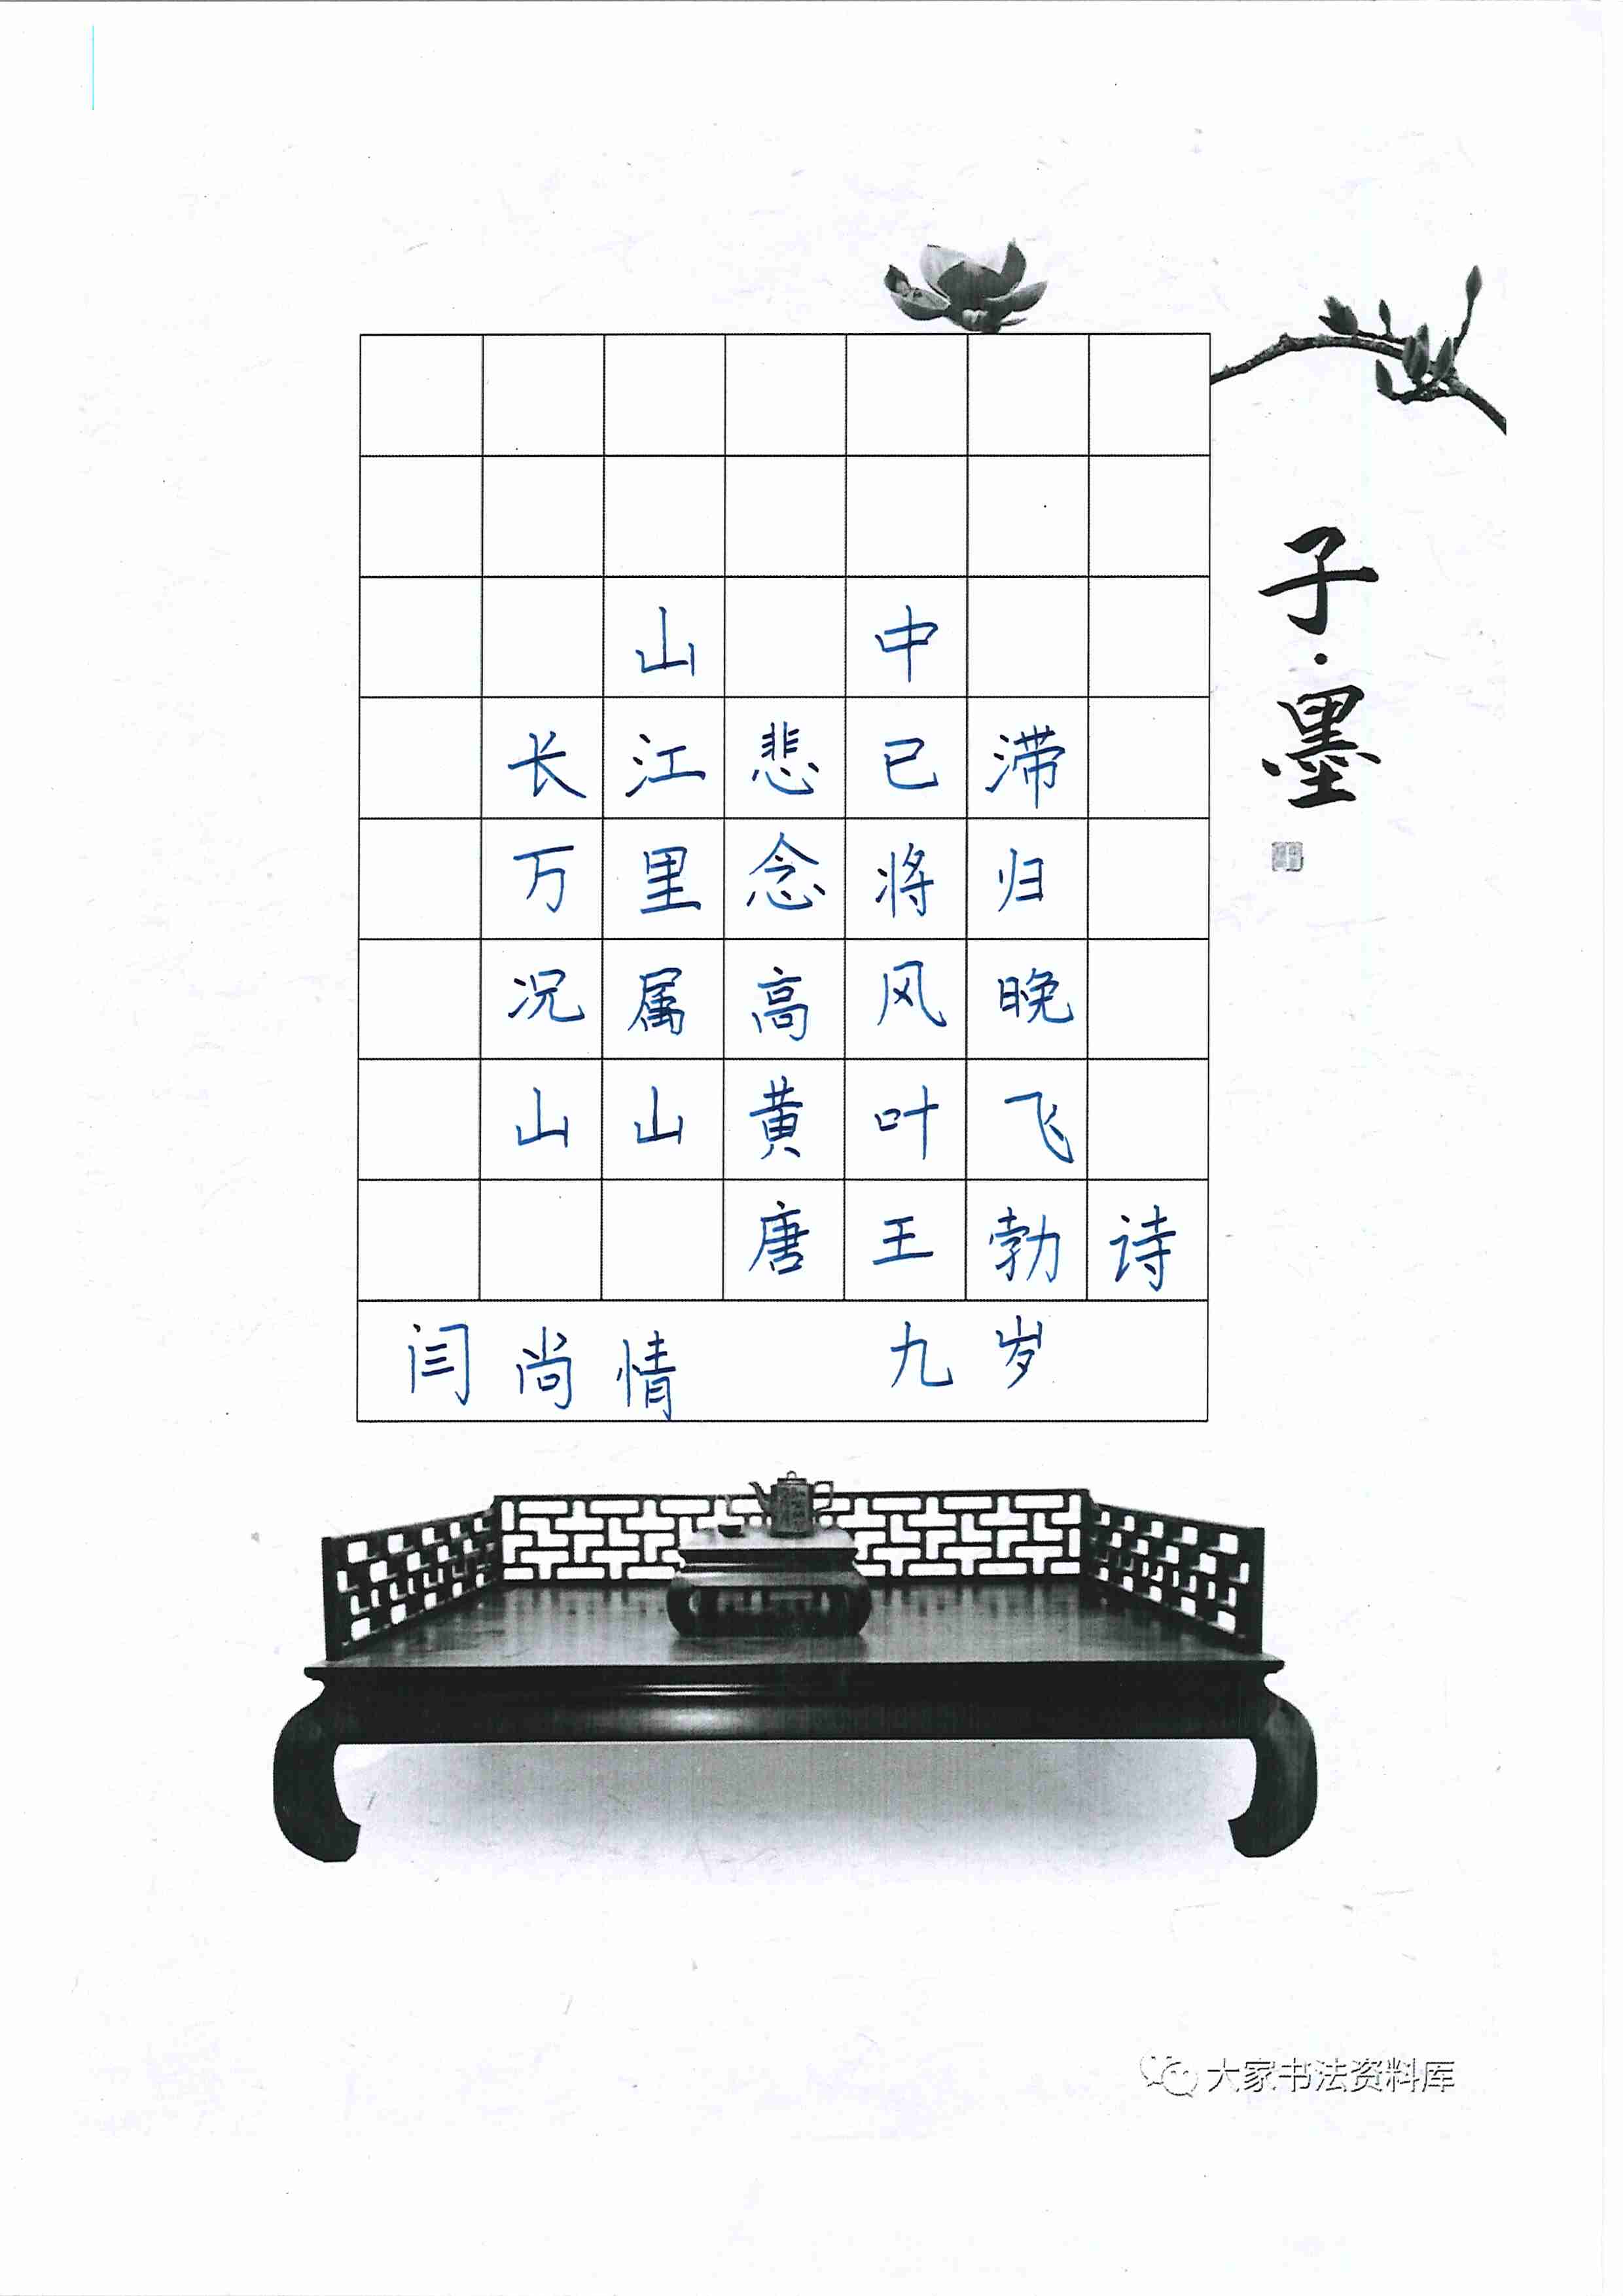 山中
长江悲已滞
万里念将归
况属高风晚
山山黄叶飞
唐王勃诗
闫尚情 九岁
子·墨
大家书法资料库